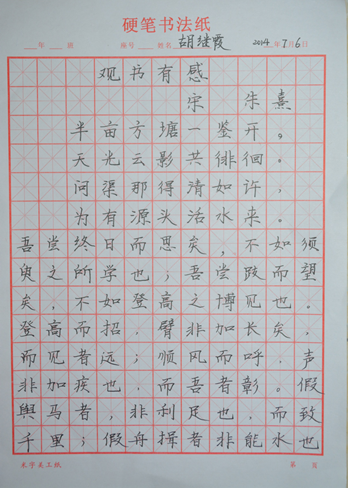 硬笔书法纸
年 班 座号 姓名 胡继霞 2014年7月6日
观书有感
宋 朱熹
半亩方塘一鉴开。
天光云影共徘徊。
问渠那得清如许，
为有源头活水来。
吾尝终日而思矣，不如须
臾之所学也；吾尝跂而望
矣，不如登高之博见也。
登高而招，臂非加长矣，
而见者远；顺风而呼，声
非加疾也，而吾者彰。假
舆马者，非利足也，而致
千里；假舟揖者非能水也
米字美工纸 第 页